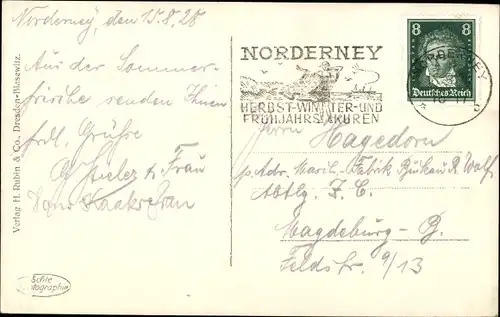 Norderney, den 15.8.28
Aus der Sommer-
frische senden Ihnen
frdl. Grüße
u. Frau
Verlag H. Rubin & Co., Dresden-Blasewitz.
Echte
Photographie
NORDERNEY
HERBST-WINTER-UND
FRÜHJAHRSKUREN
8 8
Deutsches Reich
NORDERNEY
Herrn Hagedorn
p. Adr. Masch.-Fabrik Buckau R. Wolf
Abtlg. F. C.
Magdeburg - B.
Feldstr. 9/13